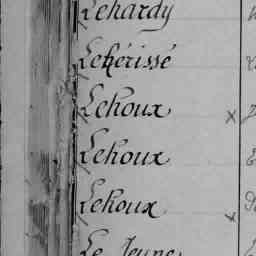 Lehardy
Lehérissé
Lehoux x
Lehoux
Lehoux x
Le Jeune